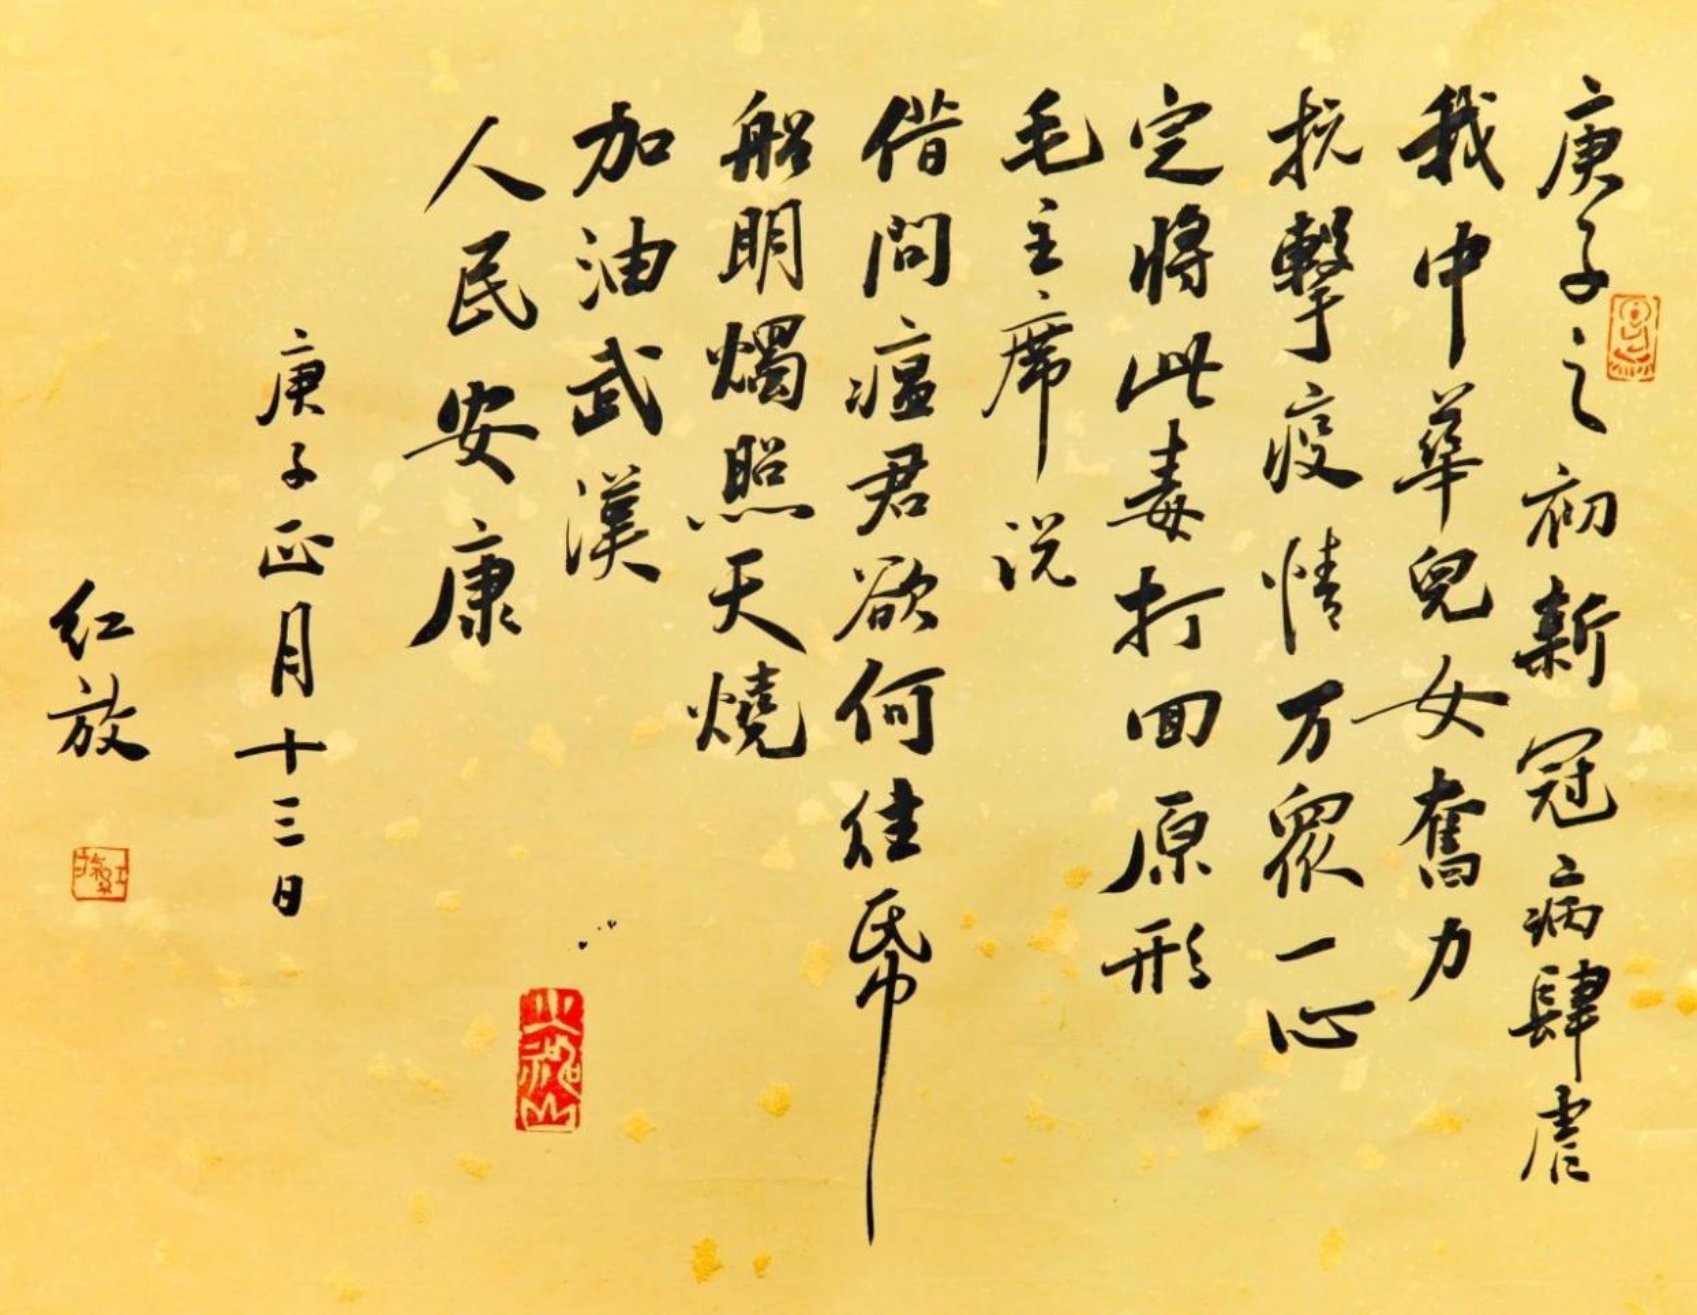 庚子之初新冠病肆虐
我中華兒女奮力
抗擊疫情万眾一心
定將此毒打回原形
毛主席说
借問瘟君欲何往帋
船明燭照天燒
加油武漢
人民安康
庚子正月十三日
红放